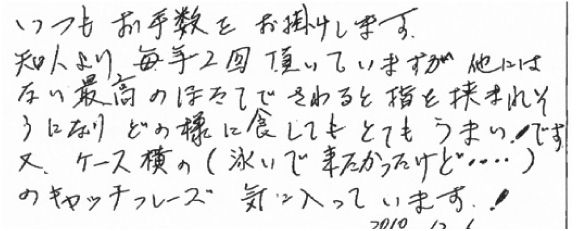 いつもお手数をお掛けします.
知人より毎年2回頂いていますが他には
ない最高のほたてでさわると指を挟まれそ
うになりどの様に食してもとてもうまい!です
又、ケース横の(泳いで来たかったけど....)
のキャッチフレーズ 気に入っています.!
2010 12 6